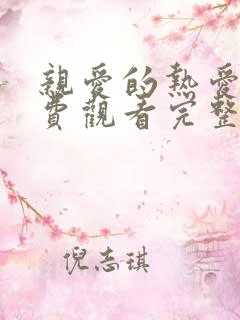 親愛的熱愛
費觀看完整
倪志琪